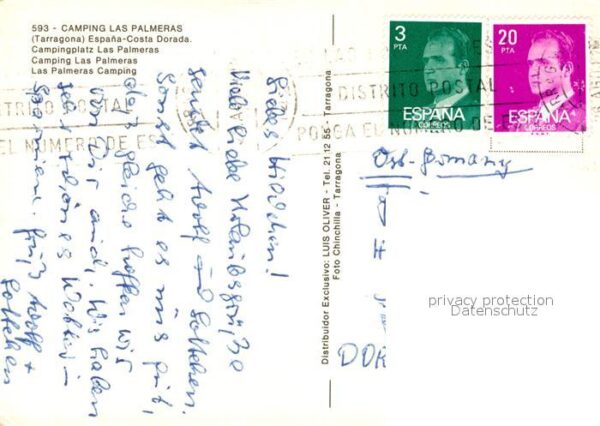 593 - CAMPING LAS PALMERAS
(Tarragona) España-Costa Dorada.
Campingplatz Las Palmeras
Camping Las Palmeras
Las Palmeras Camping
Liebes
Viele liebe Urlaubsgrüße
sendet Adolf und Lottchen.
Sonst geht es uns gut,
das gleiche hoffen wir
von Dir auch. Wir haben
sehr schönes Wetter in
Spanien. Gruß Adolf +
Lottchen
Distribuidor Exclusivo: LUIS OLIVER - Tel. 21 12 55 - Tarragona
Foto Chinchilla - Tarragona
3
PTA
ESPAÑA
CORREOS
20
PTA
ESPAÑA
CORREOS
DISTRITO POSTAL
PONGA EL NUMERO DE
DISTRITO POSTAL
EL NUMERO DE ES
Ost-Germany
DDR
privacy protection
Datenschutz